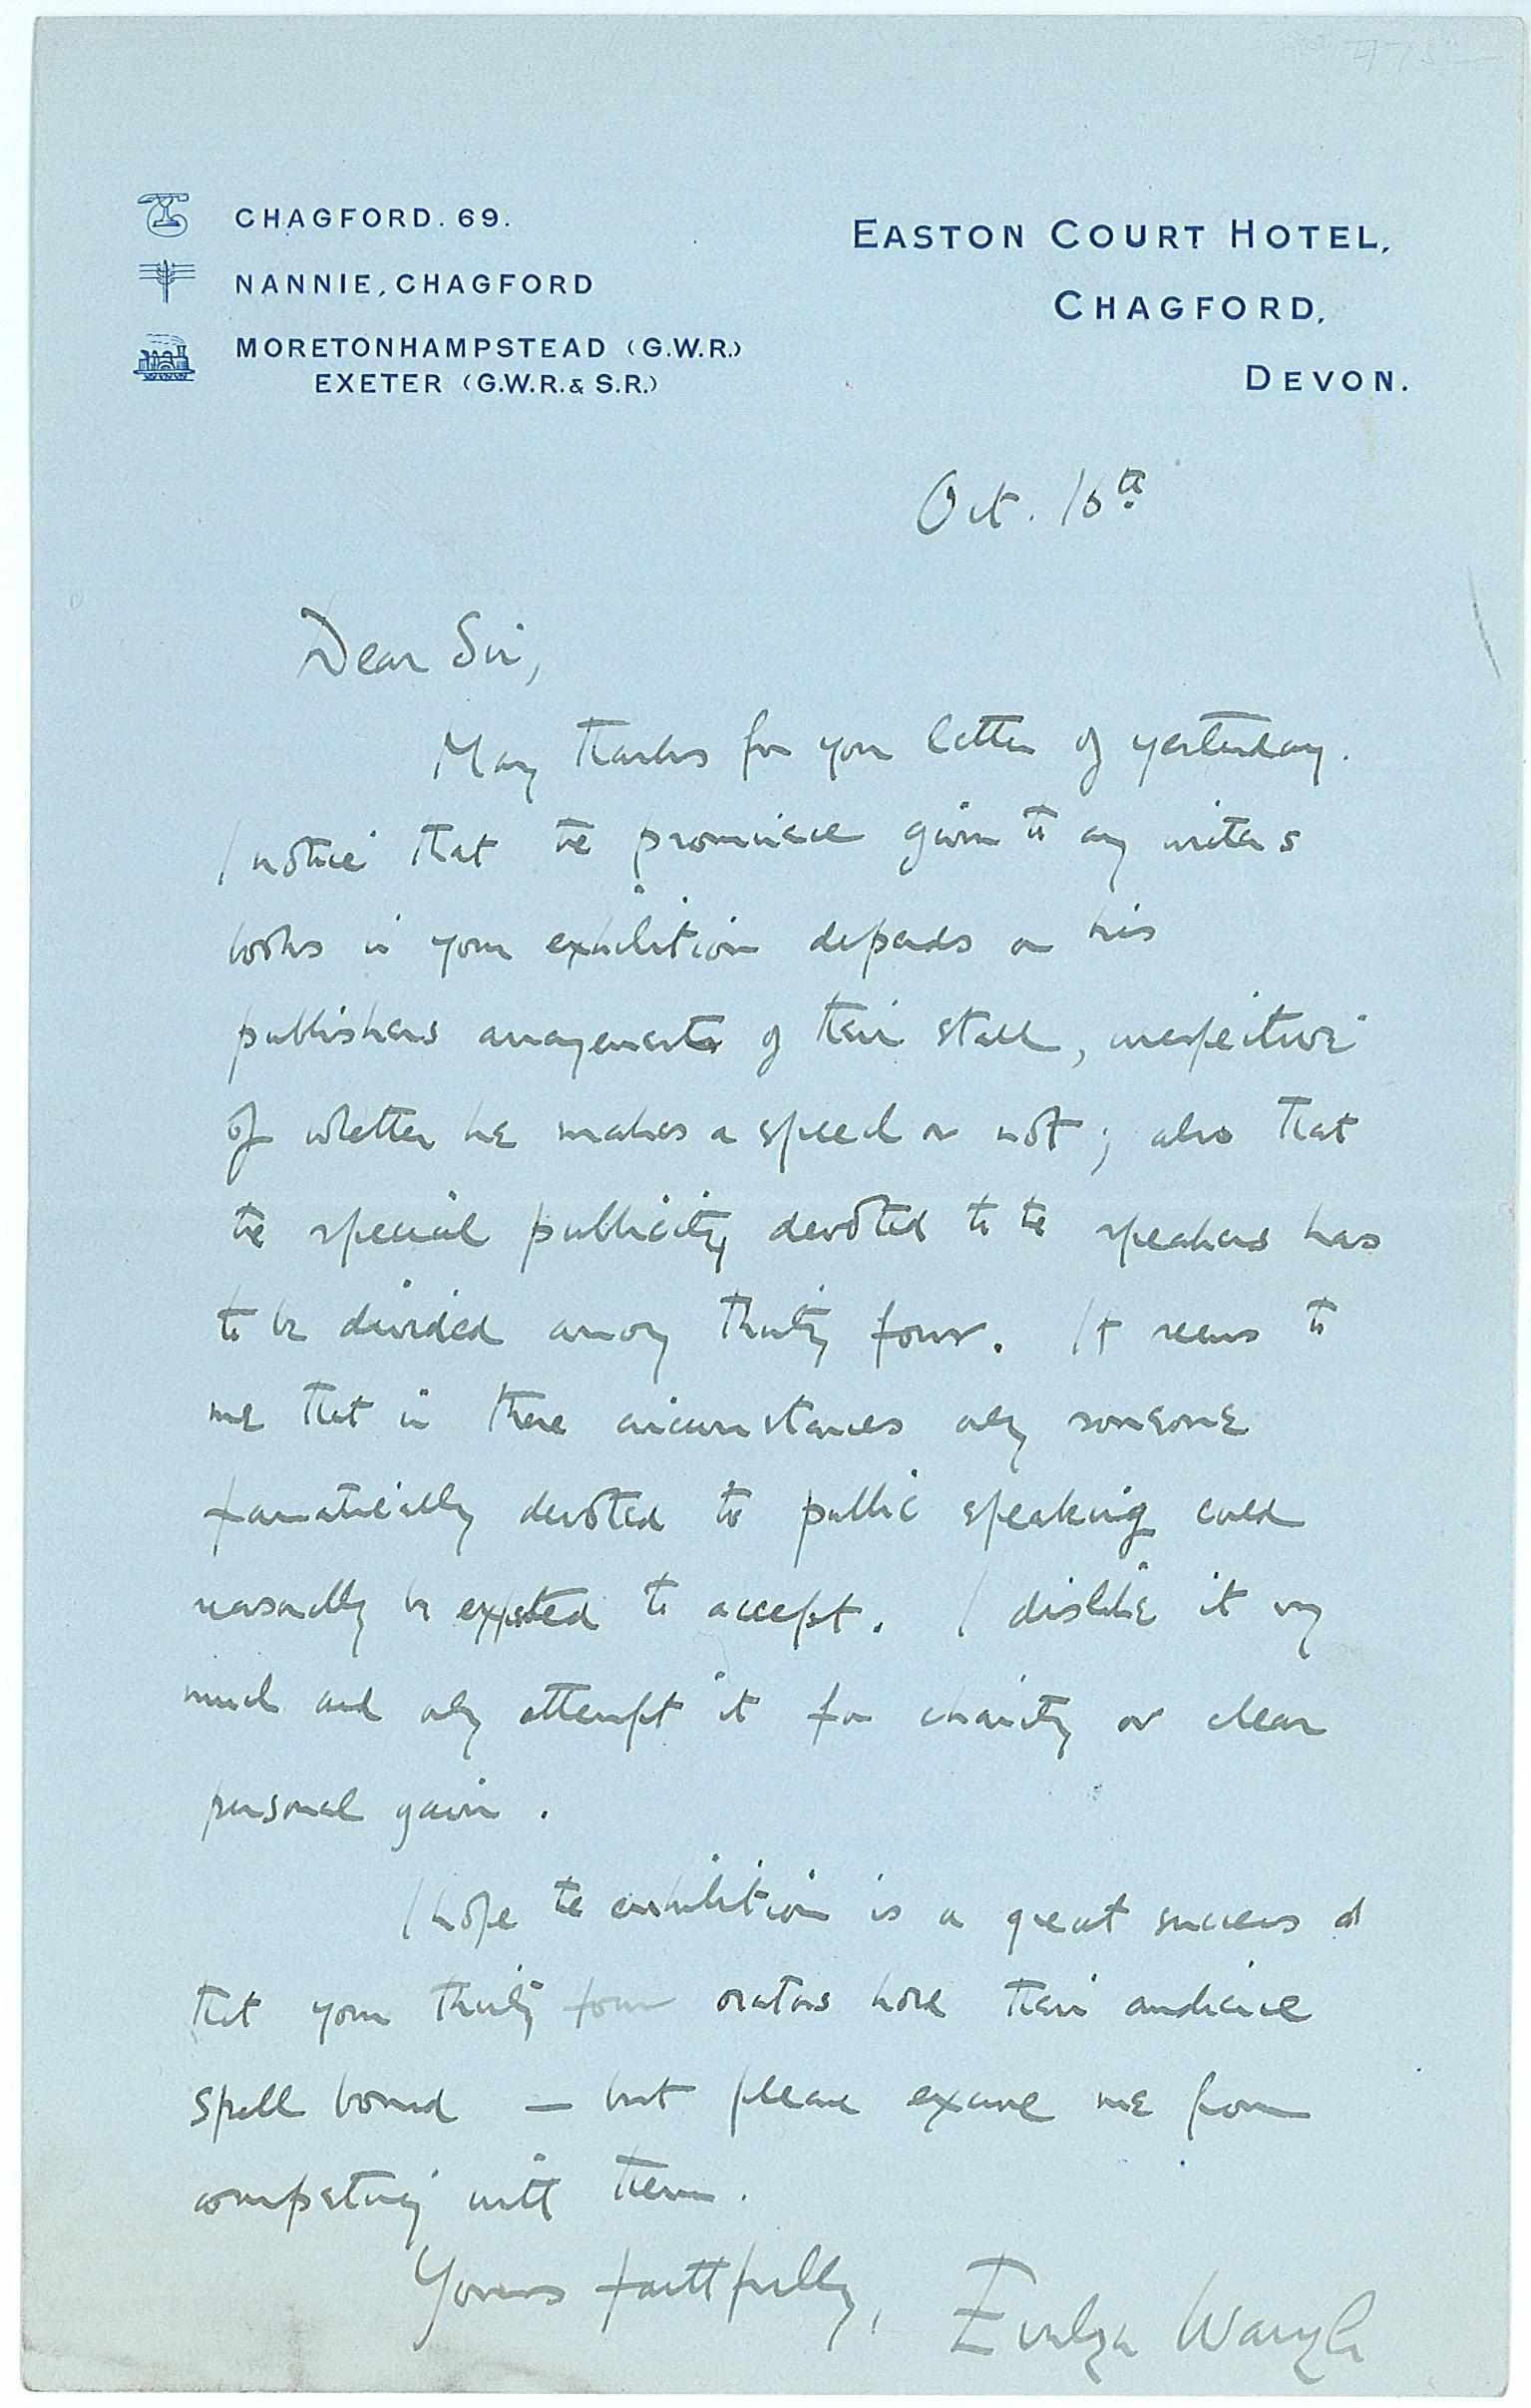 CHAGFORD. 69.
NANNIE, CHAGFORD
MORETONHAMPSTEAD (G.W.R.)
EXETER (G.W.R. & S.R.)
EASTON COURT HOTEL,
CHAGFORD,
DEVON.
Oct. 16th
Dear Sir,
Many thanks for your letter of yesterday.
I notice that the prominence given to any writers
books in your exhibition depends on his
publishers arrangements of their stall, irrespective
of whether he makes a speech or not; also that
the special publicity devoted to the speakers has
to be divided among thirty four. It seems to
me that in these circumstances only someone
fanatically devoted to public speaking could
reasonably be expected to accept. I dislike it very
much and only attempt it for charity or clear
personal gain.
I hope the exhibition is a great success &
that your thirty four orators hold their audience
spell bound — but please excuse me from
competing with them.
Yours faithfully, Evelyn Waugh